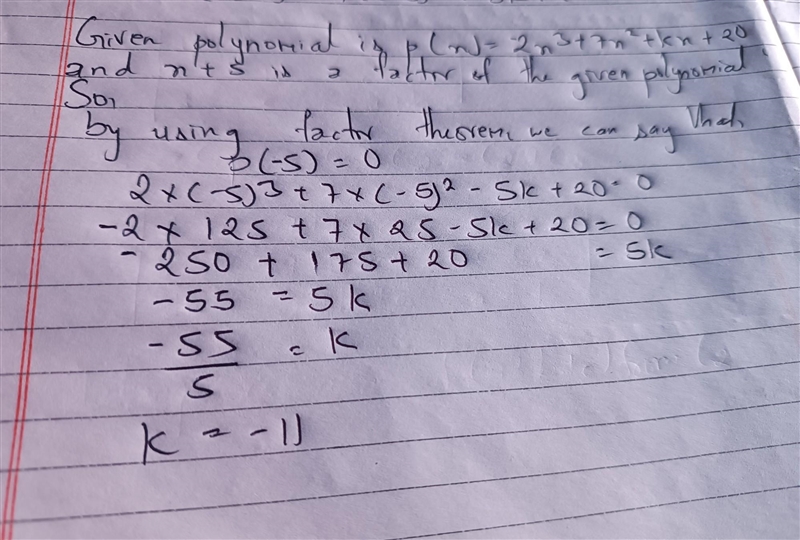 Given polynomial is p(n) = 2n³+7n²+kn+20
and n+5 is a factor of the given polynomial
So,
by using factor theorem, we can say that
p(-5) = 0
2×(-5)³+7×(-5)²-5k+20=0
-2×125+7×25-5k+20=0
-250+175+20 =5k
-55 = 5k
-55/5 = k
k = -11